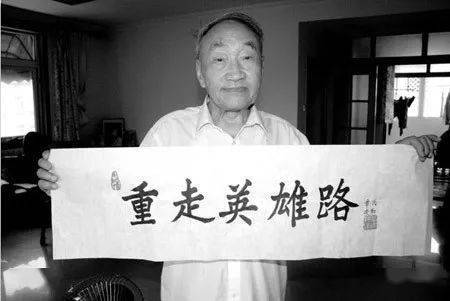 重走英雄路